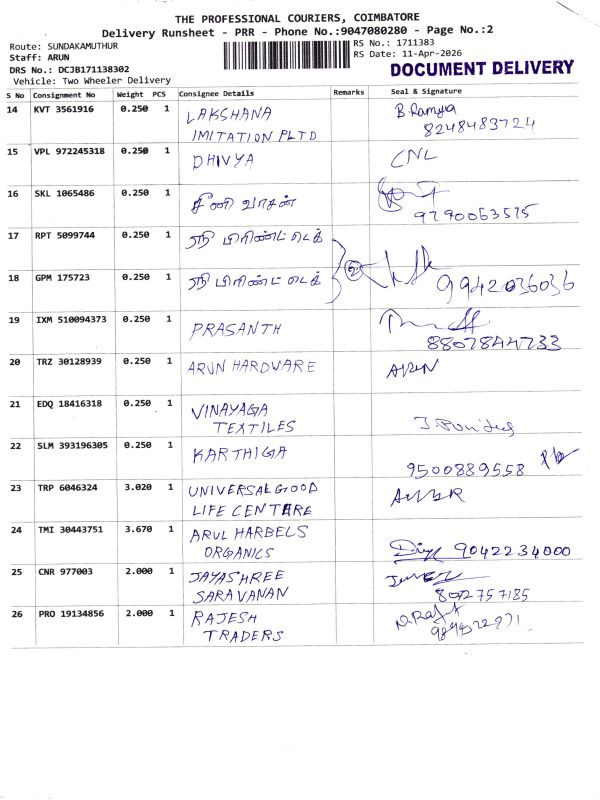 THE PROFESSIONAL COURIERS, COIMBATORE
Delivery Runsheet - PRR - Phone No.:9047080280 - Page No.:2
Route: SUNDAKAMUTHUR
RS No.: 1711383
Staff: ARUN
RS Date: 11-Apr-2026
DRS No.: DCJB171138302
DOCUMENT DELIVERY
Vehicle: Two Wheeler Delivery
S No Consignment No Weight PCS Consignee Details Remarks Seal & Signature
14 KVT 3561916 0.250 1 LAKSHANA B. Ramya
IMITATION PLTD 8248483724
15 VPL 972245318 0.250 1 DHIVYA CNL
16 SKL 1065486 0.250 1 சீனி வாசன்
9790063575
17 RPT 5099744 0.250 1 ஸ்ரீ பிரிண்ட் டெக்
2
18 GPM 175723 0.250 1 ஸ்ரீ பிரிண்ட் டெக் 9942036036
19 IXM 510094373 0.250 1 PRASANTH
8807844733
20 TRZ 30128939 0.250 1 ARUN HARDWARE ARUN
21 EDQ 18416318 0.250 1 VINAYAGA
TEXTILES
22 SLM 393196305 0.250 1 KARTHIGA
9500889558
23 TRP 6046324 3.020 1 UNIVERSAL GOOD
LIFE CENTERE
24 TMI 30443751 3.670 1 ARUL HARBELS
ORGANICS 9042234000
25 CNR 977003 2.000 1 JAYASHREE
SARAVANAN 8072757185
26 PRO 19134856 2.000 1 RAJESH
TRADERS